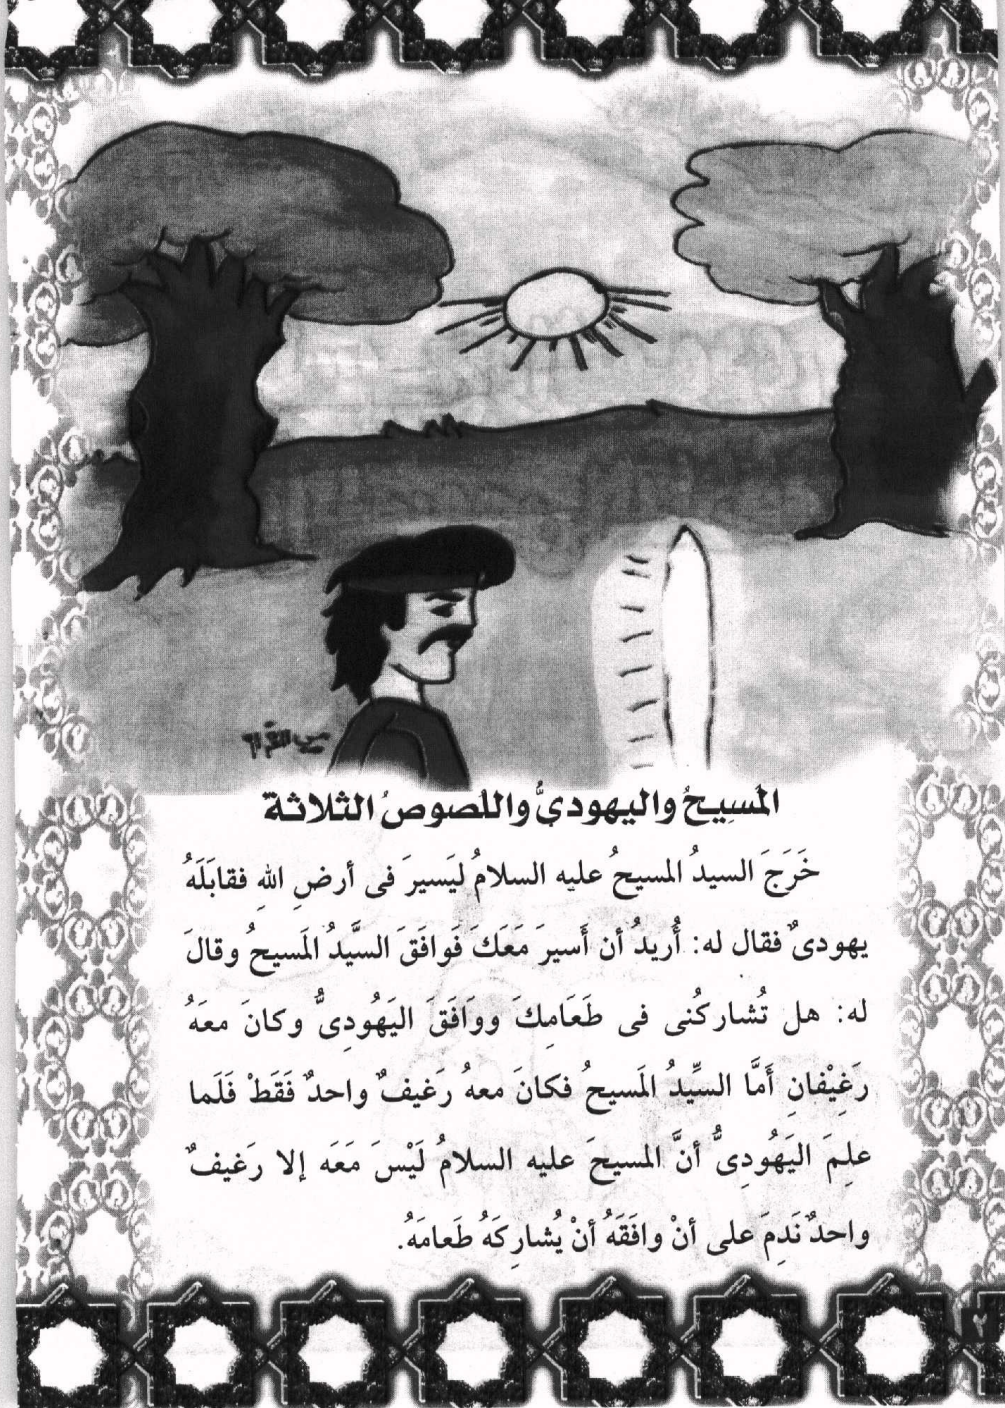 المَسِيحُ واليهوديُّ واللصوصُ الثلاثة
خَرَجَ السيدُ المسيحُ عليه السلامُ لَيَسيرَ فى أرضِ اللهِ فقابَلَهُ
يهودىٌ فقال له: أُريدُ أن أَسيرَ مَعَكَ فَوافَقَ السَّيِّدُ المَسيحُ وقالَ
له: هل تُشاركُنى فى طَعَامِكَ ووَافَقَ اليَهُودِىُّ وكانَ معَهُ
رَغِيْفانِ أَمَّا السِّيِّدُ المَسيحُ فكانَ معهُ رَغيفٌ واحدٌ فَقَطْ فَلَما
علِمَ اليَهُودِىُّ أنَّ المسيحَ عليه السلامُ لَيْسَ مَعَه إلا رغَيفٌ
واحدٌ نَدِمَ على أنْ وافَقَهُ أنْ يُشارِكَهُ طَعامَهُ.
٢